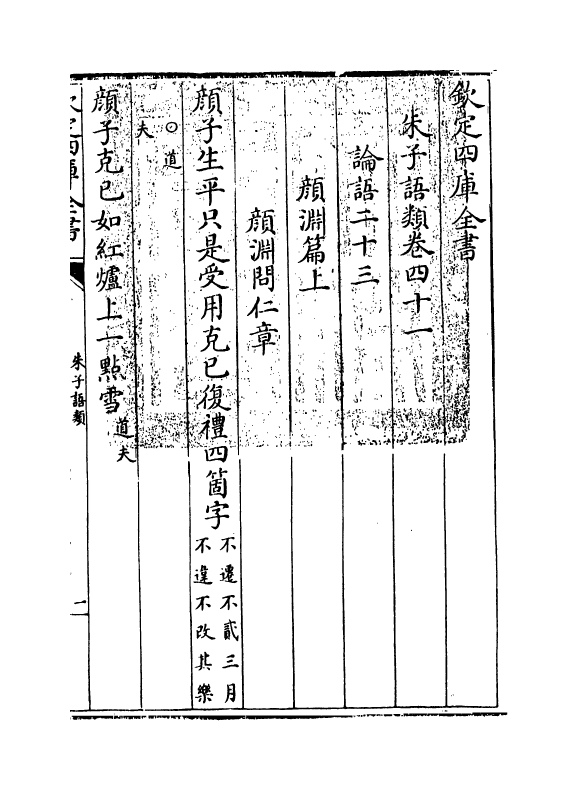 欽定四庫全書
朱子語類卷四十一
論語二十三
顔淵篇上
顔淵問仁章
顔子生平只是受用克已復禮四箇字不遷不貳三月不違不改其樂
○道夫
顔子克已如紅爐上一點雪道夫
欽定四庫全書
朱子語類
二